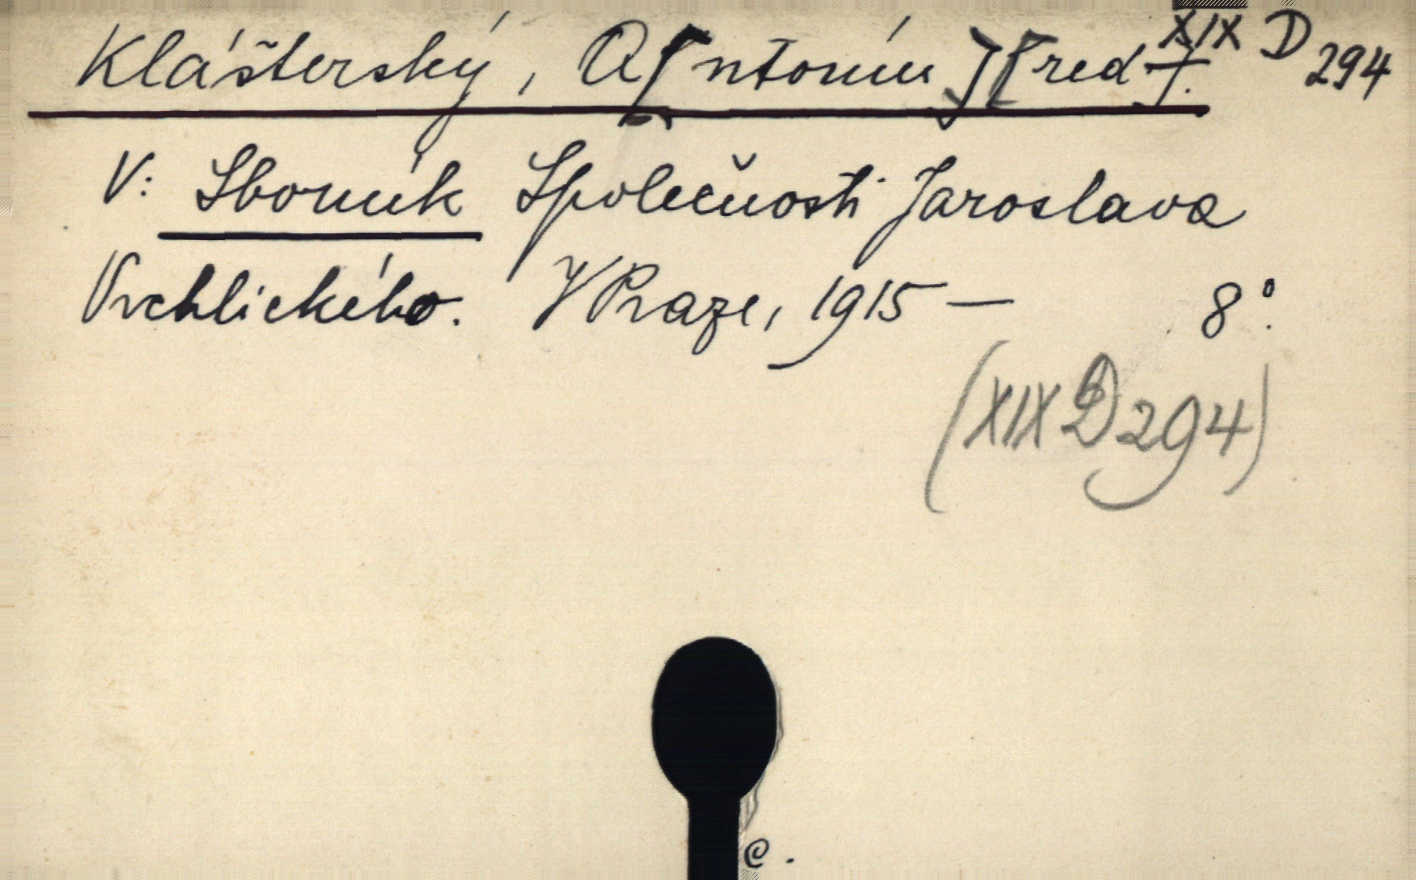 Klášterský, A[ntonín] [red.].
XIX D 294
V: Sborník Společnosti Jaroslava
Vrchlického. V Praze, 1915 — 8°.
(XIX D 294)
C.